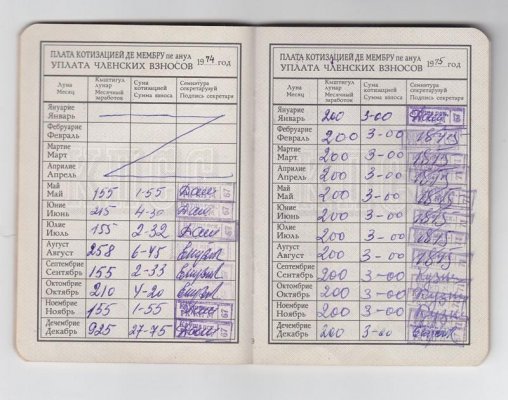 ПЛАТА КОТИЗАЦИЕЙ ДЕ МЕМБРУ пе анул
УПЛАТА ЧЛЕНСКИХ ВЗНОСОВ 1974 год
Луна
Месяц
Кыштигул лунар
Месячный заработок
Сума котизацией
Сумма взноса
Семнэтура секретарулуй
Подпись секретаря
Януарие
Январь
Фебруарие
Февраль
Мартие
Март
Априлие
Апрель
Май
Май 155 1-55
Юние
Июнь 215 4-30
Юлие
Июль 155 2-32
Аугуст
Август 258 6-45
Септембрие
Сентябрь 155 2-33
Октомбрие
Октябрь 210 4-20
Ноембрие
Ноябрь 155 1-55
Дечембрие
Декабрь 925 27-75
ПЛАТА КОТИЗАЦИЕЙ ДЕ МЕМБРУ пе анул
УПЛАТА ЧЛЕНСКИХ ВЗНОСОВ 1975 год
Луна
Месяц
Кыштигул лунар
Месячный заработок
Сума котизацией
Сумма взноса
Семнэтура секретарулуй
Подпись секретаря
Януарие
Январь 200 3-00
Фебруарие
Февраль 200 3-00
Мартие
Март 200 3-00
Априлие
Апрель 200 3-00
Май
Май 200 3-00
Юние
Июнь 200 3-00
Юлие
Июль 200 3-00
Аугуст
Август 200 3-00
Септембрие
Сентябрь 200 3-00
Октомбрие
Октябрь 200 3-00
Ноембрие
Ноябрь 200 3-00
Дечембрие
Декабрь 200 3-00